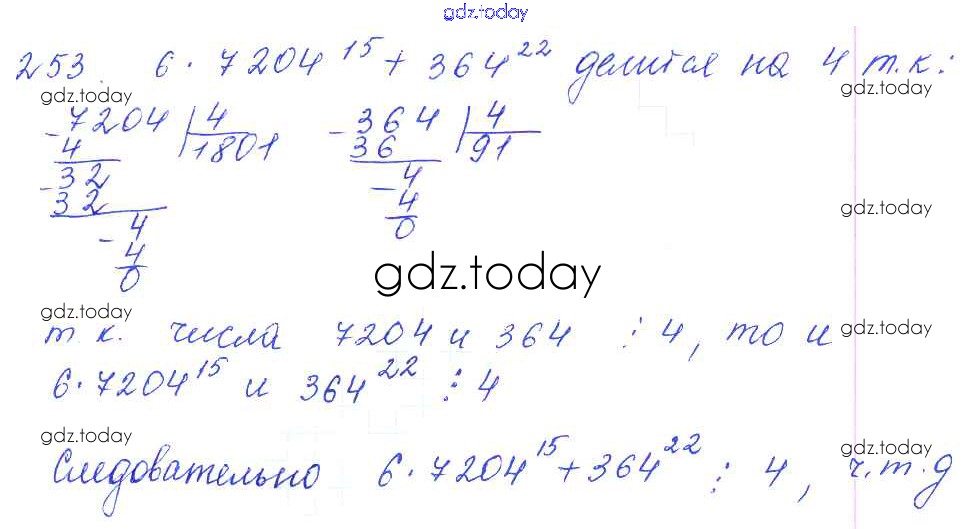 gdz.today
253. 6·7204^15 + 364^22 делится на 4 т.к:
gdz.today gdz.today
-7204 | 4 -364 | 4
4 1801 36 91
-32 -4
32 4
-4 0
4
0
gdz.today
gdz.today
gdz.today gdz.today
т.к. числа 7204 и 364 ⋮ 4, то и
6·7204^15 и 364^22 ⋮ 4
gdz.today gdz.today
Следовательно 6·7204^15 + 364^22 ⋮ 4, ч.т.д